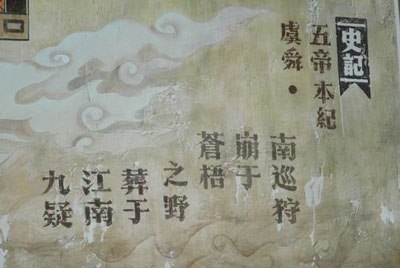 史記
五帝本紀
虞舜·
南巡狩
崩于
蒼梧
之野
葬于
江南
九疑